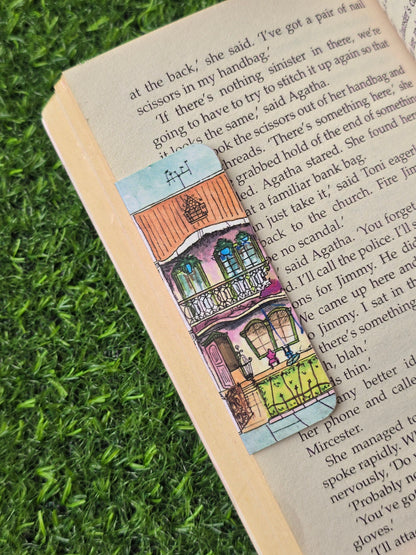 at the back,' she said. 'I've got a pair of nail
scissors in my handbag.'
'If there's nothing sinister in there, we're
going to have to try to stitch it up again so that
it looks the same,' said Agatha.
took the scissors out of her handbag and
threads. 'There's something here,' she
grabbed hold of the end of something
Agatha stared. She found herself
a familiar bank bag.
just take it,' said Toni eagerly.
back to the church. Fire Jimmy
no scandal.'
said Agatha. 'You forget
I'll call the police. I'll
ons for Jimmy. He di
We came up here and
Jimmy. I sat in t
there's something
blah.'
is thin.'
ny better id
her phone and called
Mircester.
She managed to
spoke rapidly. W
nervously, 'Do y
'Probably no
'You've got
gloves.
'I'll att